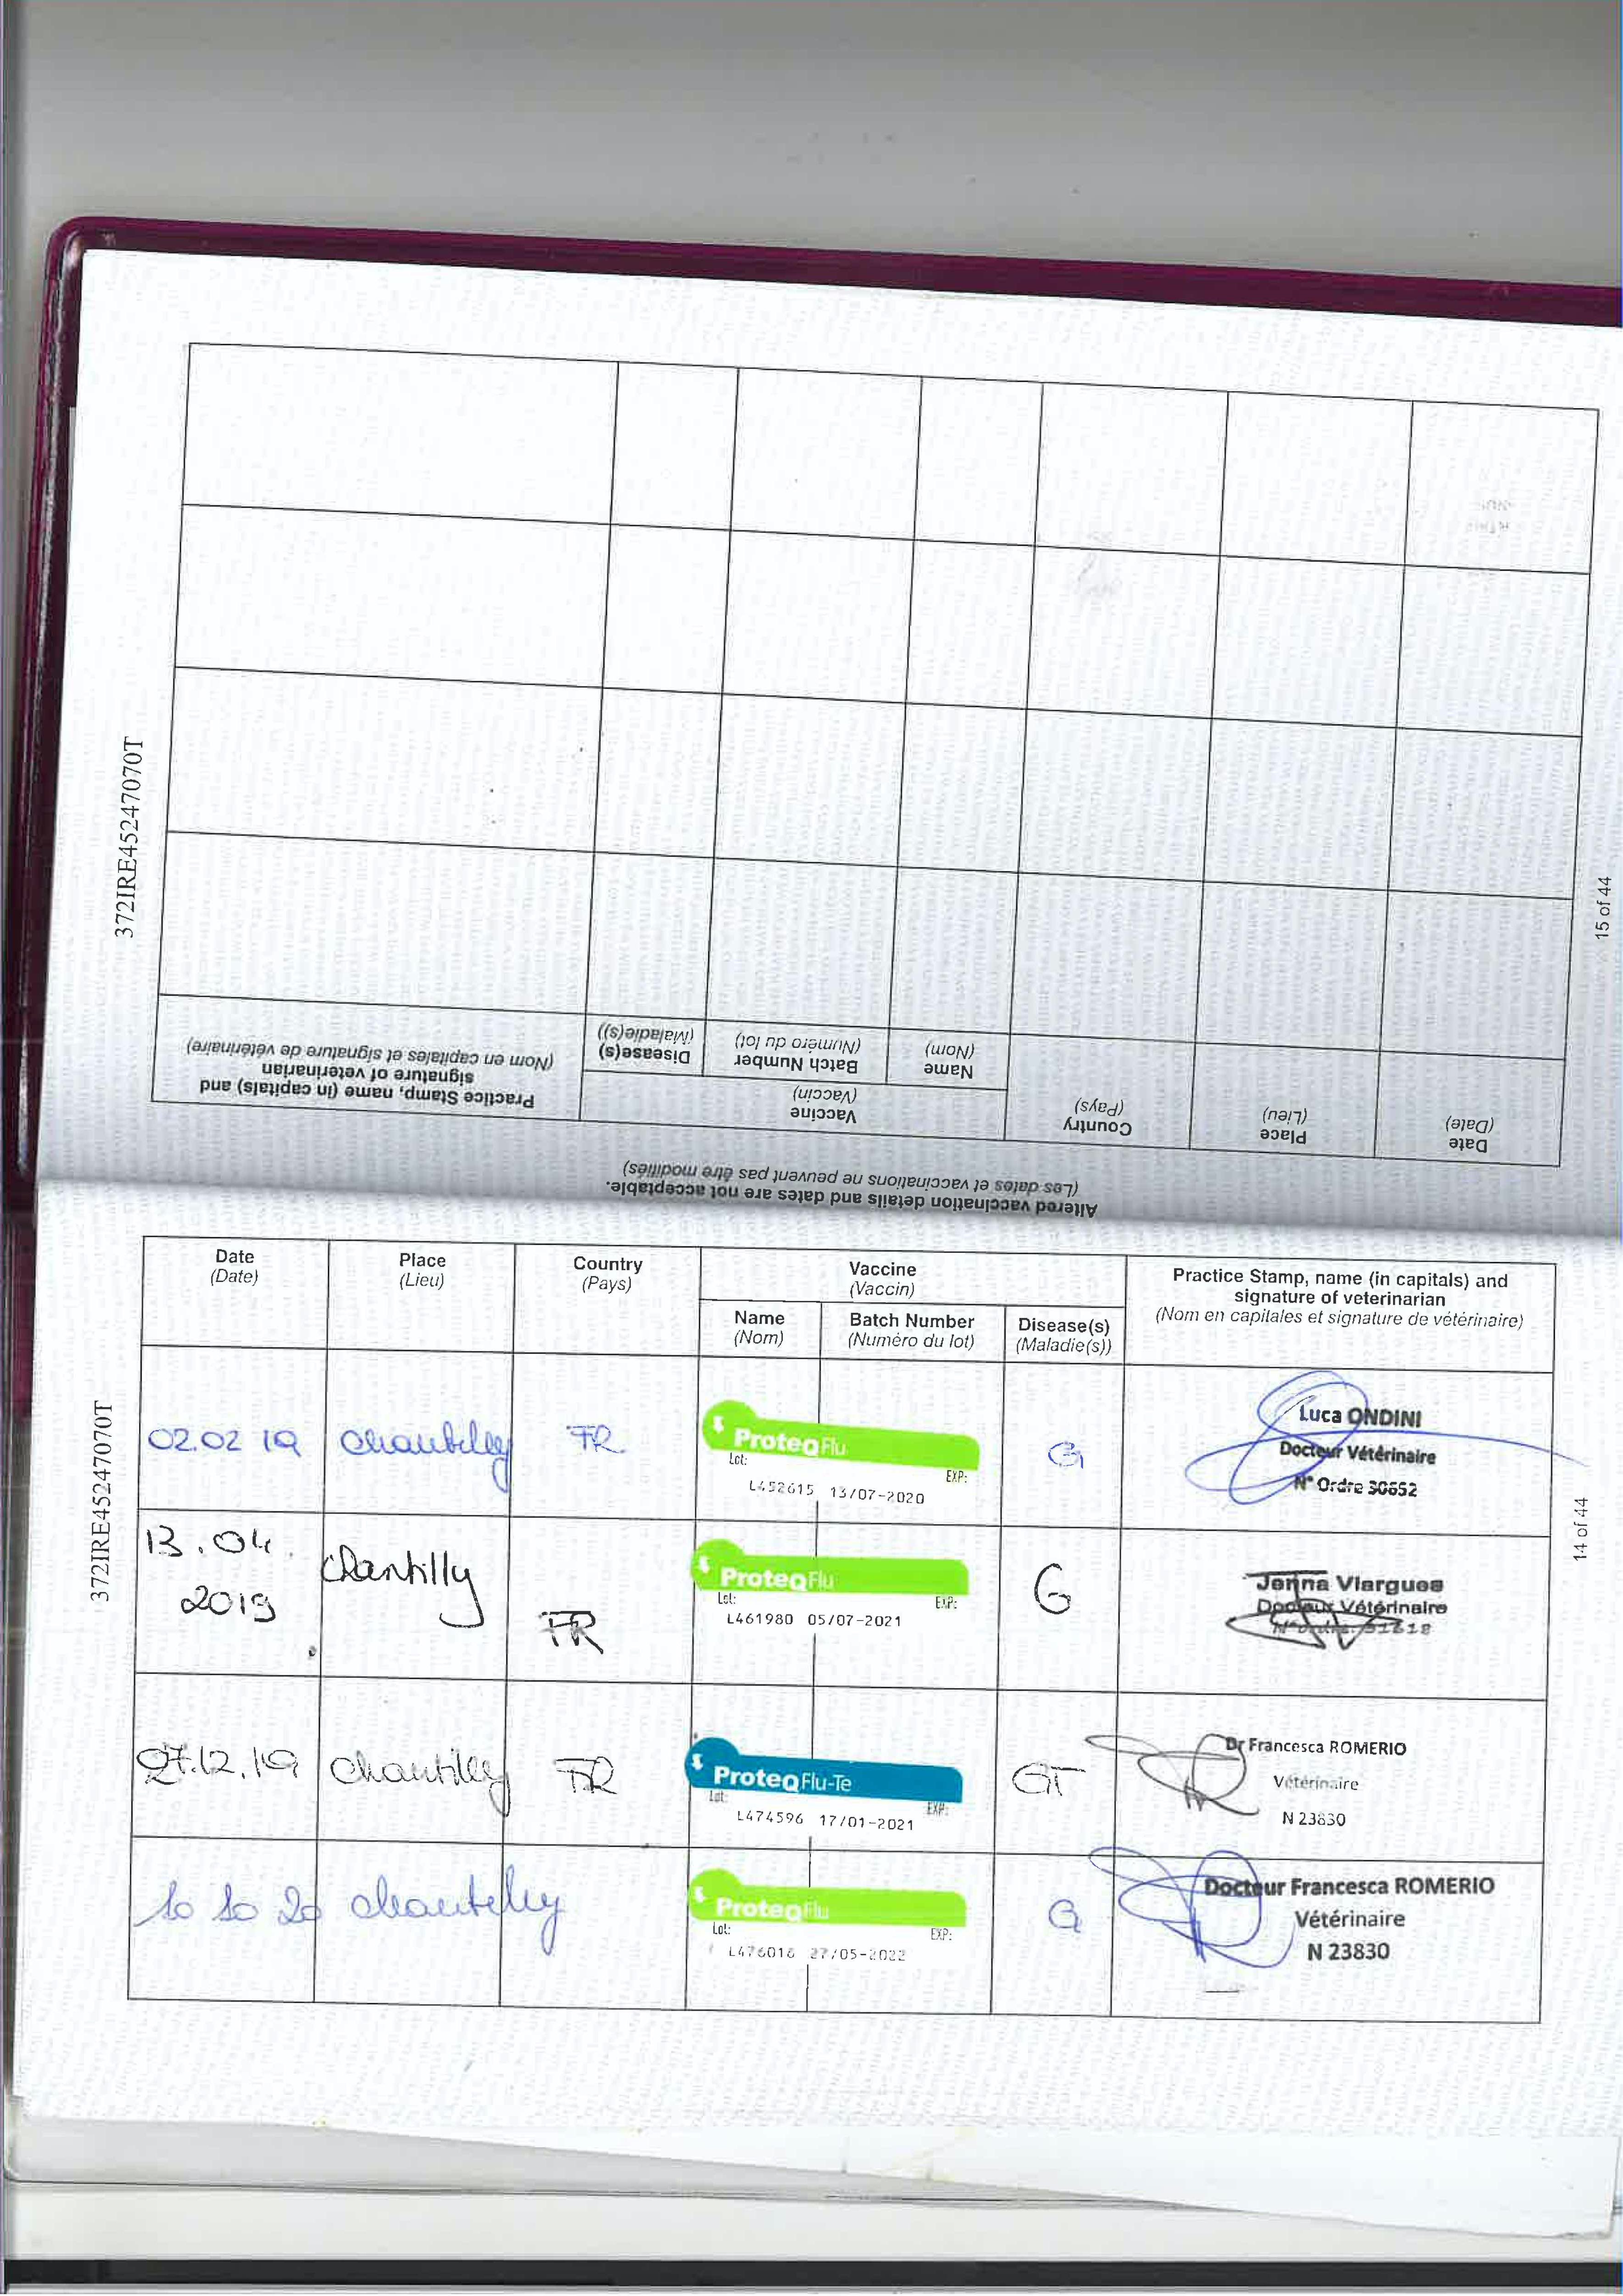 372IRE45247070T
15 of 44
Altered vaccination details and dates are not acceptable.
(Les dates et vaccinations ne peuvent pas être modifiées)
Date
(Date)
Place
(Lieu)
Country
(Pays)
Vaccine
(Vaccin)
Name
(Nom)
Batch Number
(Numéro du lot)
Disease(s)
(Maladie(s))
Practice Stamp, name (in capitals) and
signature of veterinarian
(Nom en capitales et signature de vétérinaire)
372IRE45247070T
14 of 44
Date
(Date)
Place
(Lieu)
Country
(Pays)
Vaccine
(Vaccin)
Name
(Nom)
Batch Number
(Numéro du lot)
Disease(s)
(Maladie(s))
Practice Stamp, name (in capitals) and
signature of veterinarian
(Nom en capitales et signature de vétérinaire)
02.02 19
Chantilly
FR
ProteqFlu
Lot: EXP:
L452615 13/07-2020
G
Luca ONDINI
Docteur Vétérinaire
N° Ordre 30652
13.04.
2019
Chantilly
FR
ProteqFlu
Lot: EXP:
L461980 05/07-2021
G
Jenna Viargues
Docteur Vétérinaire
27.12.19
Chantilly
FR
ProteqFlu-Te
Lot: EXP:
L474596 17/01-2021
GT
Dr Francesca ROMERIO
Vétérinaire
N 23830
10 10 20
Chantilly
ProteqFlu
Lot: EXP:
L476016 27/05-2022
G
Docteur Francesca ROMERIO
Vétérinaire
N 23830